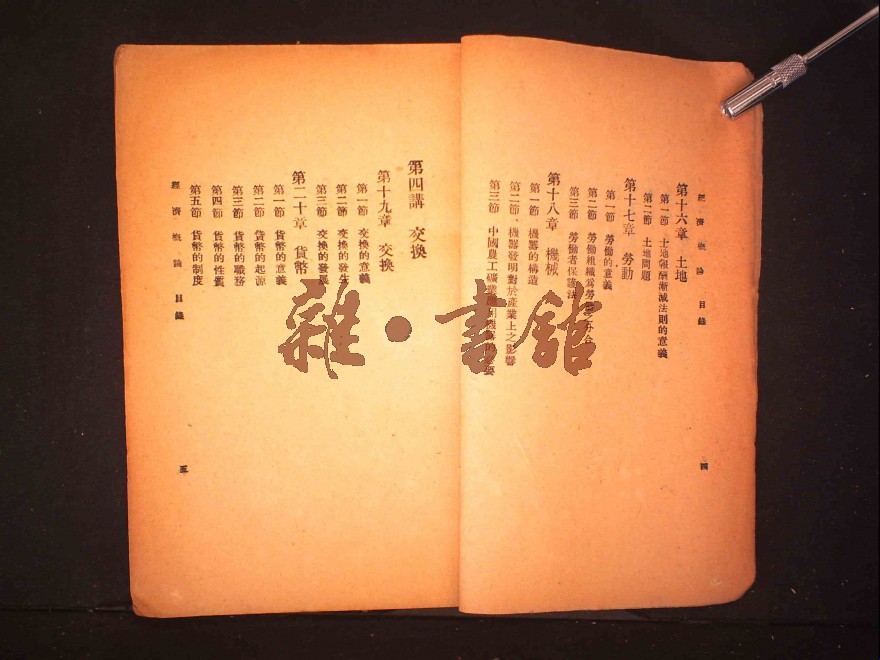 經濟概論 目錄
四
第十六章 土地
第一節 土地報酬漸減法則的意義
第二節 土地問題
第十七章 勞動
第一節 勞働的意義
第二節 勞働組織為勞
第三節 勞働者保護法
第十八章 機械
第一節 機器的構造
第二節 機器發明對於產業上之影響
第三節 中國農工礦業
第四講 交換
第十九章 交換
第一節 交換的意義
第二節 交換的發生
第三節 交換的發展
第二十章 貨幣
第一節 貨幣的意義
第二節 貨幣的起源
第三節 貨幣的職務
第四節 貨幣的性質
第五節 貨幣的制度
經濟概論 目錄
五
雜·書館